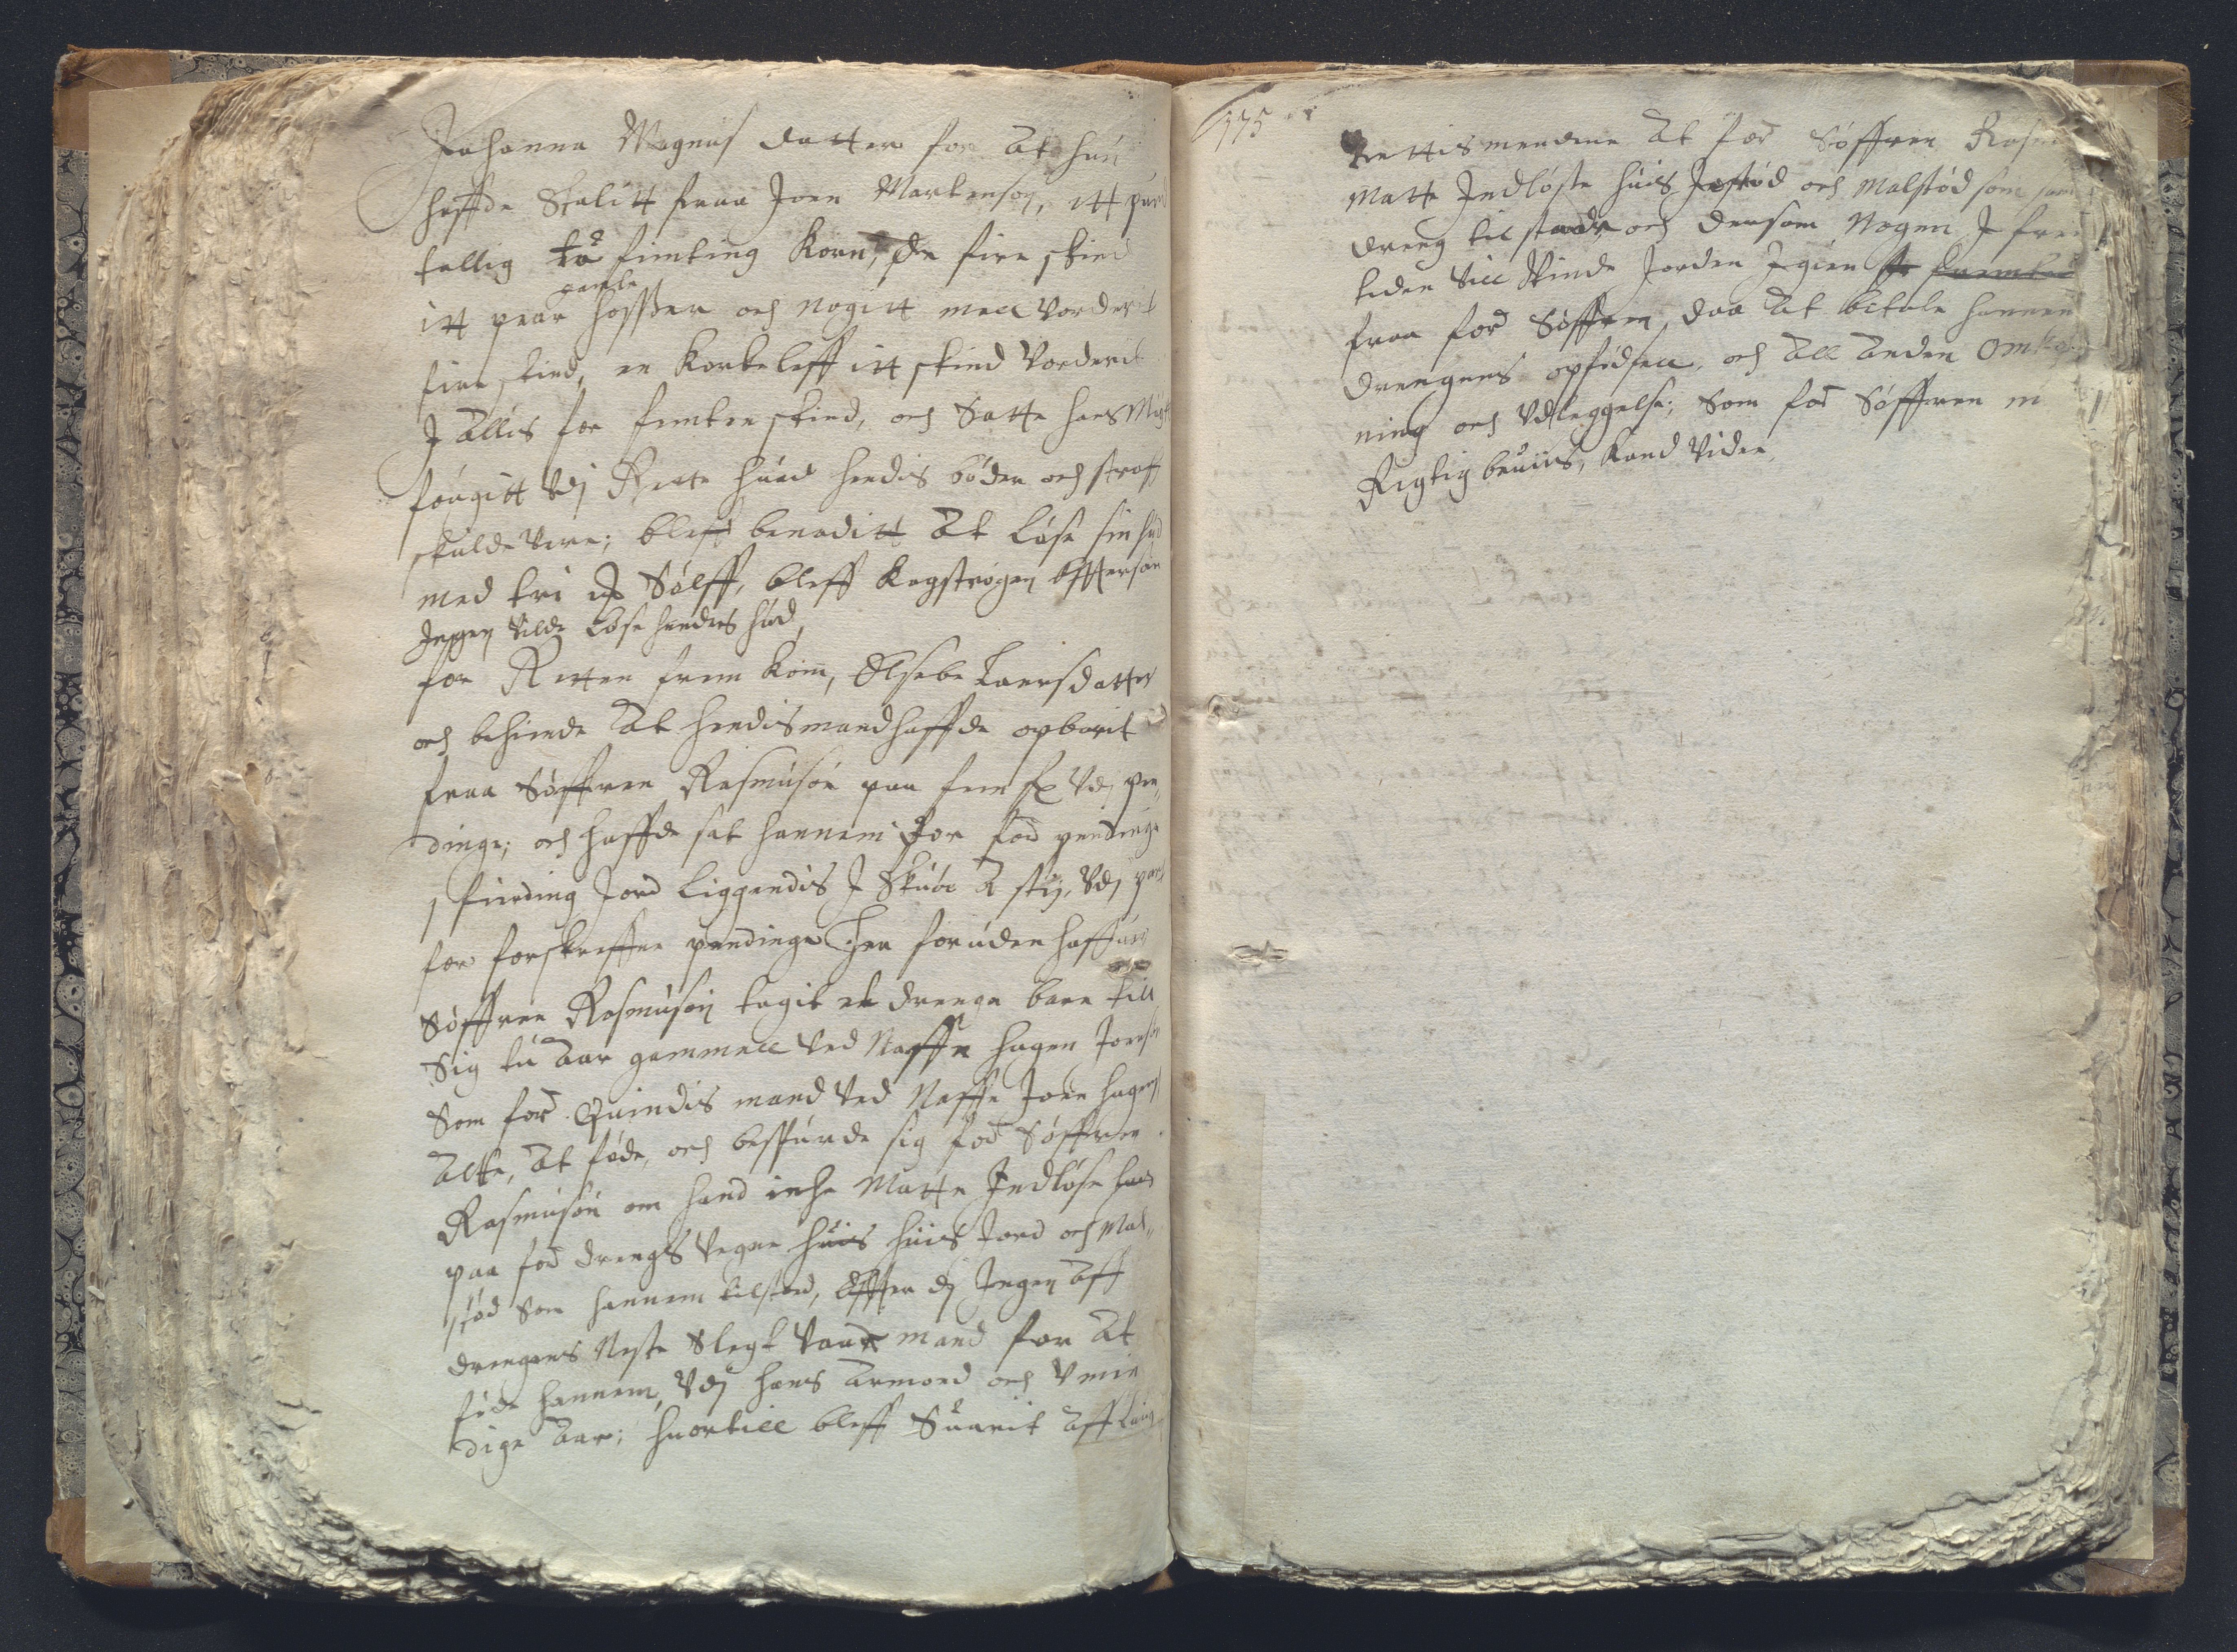 Johanna Magnus datter for at hun
haffde Stalitt fraa Joen Martenson, itt pund
tallig to fimting Korn, for fire skind
gamle
itt paar Hosser och nogitt meel Vorderit
fire skind, en Korteleff itt skind Vorderit
J allis for femten skind, och Satte hans Mayt
fougitt Udj Rette huad hendis böder och straff
skulde Vere; bleff benaditt at löse sin hud
med tri Sölff, bleff Kagströgen effterson
Jngen Vilde Löse hendes hud,
for Retten frem Kom, Elsebe Laersdatter
och bekiende at hendis mand haffde opborit
fraa Söffren Rasmusön paa fem Udj pen-
dinge; och haffde sat hannem for for pendinge
1 fierding Jord Liggendis J Skuoe a Udj pant
for forskreffne pendinge Her foruden haffuer
Söffren Rasmusön tagit et drenge barn till
Sig tu aar gammell Ved Naffn Hagen Joensön
Som for quindis mand Ved Naffn Joen Hagens
atte, at föde, och bespurde sig for Söffren
Rasmusön om hand icke Motte Jndlöse
paa for drengs Vegne huis huis Jord och Mal-
stöd Som hannem tilstod, Effter dj Jngen aff
drengens Neste Slegt Vaar mand for at
föde hannem, Udj hans armod och Umin
dige aar; huortill bleff Suarit aff Laug
175
rettismendene at for Söffren Rasm
Matte Jndlöste huis Jostöd och Malstöd som
dreng til stander och dersom Nogen J frem
tiden Vill Vinde Jorden Jgien
fraa for Söffren, daa at betale hannem
drengens opfödsell, och all anden Omkost
ning och Udleggelse; Som for Söffren m
Rigtig beuiis, Kand Vider,